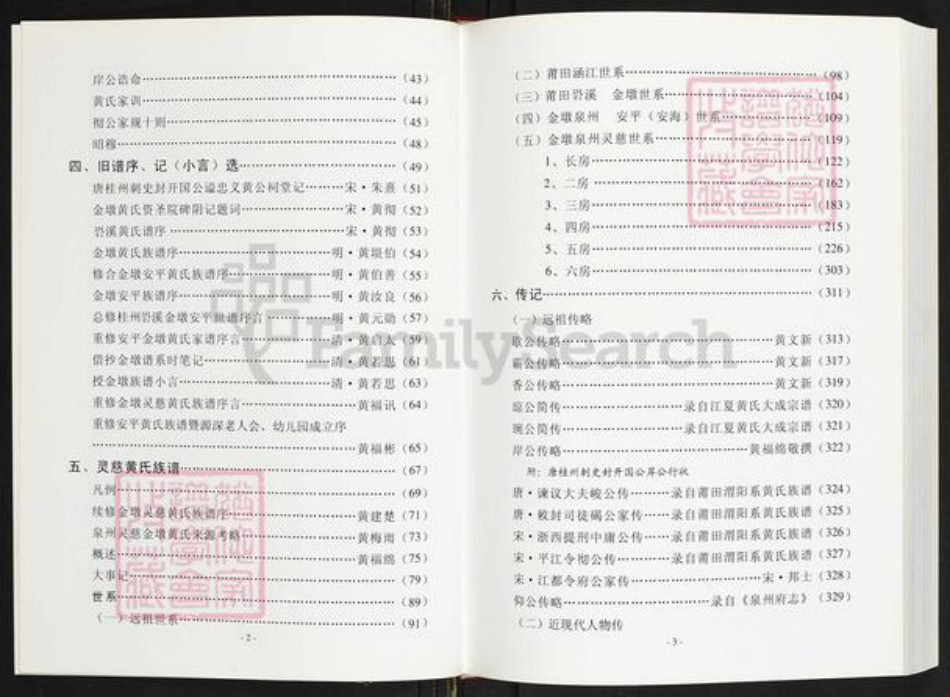 岸公诰命……(43)
黄氏家训……(44)
彻公家规十则……(45)
昭穆……(48)
四、旧谱序、记(小言)选……(49)
唐桂州刺史封开国公谥忠义黄公祠堂记……宋·朱熹(51)
金墩黄氏资圣院碑阴记题词……宋·黄彻(52)
岩溪黄氏谱序……宋·黄彻(53)
金墩黄氏族谱序……明·黄堪伯(54)
修合金墩安平黄氏族谱序……明·黄伯善(55)
金墩安平族谱序……明·黄汝良(56)
总修桂州岩溪金墩安平世谱序言……明·黄元勋(57)
重修安平金墩黄氏家谱序言……清·黄启太(59)
借抄金墩谱系时笔记……清·黄若思(61)
授金墩族谱小言……清·黄若思(63)
重修金墩灵慈黄氏族谱序言……黄福讯(64)
重修安平黄氏族谱暨源深老人会、幼儿园成立序
……黄福彬(65)
五、灵慈黄氏族谱……(67)
凡例……(69)
续修金墩灵慈黄氏族谱序……黄建楚(71)
泉州灵慈金墩黄氏来源考略……黄梅雨(73)
概述……黄福绵(75)
大事记……(79)
世系……(89)
(一)远祖世系……(91)
-2-
(二)莆田涵江世系……(98)
(三)莆田岩溪 金墩世系……(104)
(四)金墩泉州 安平(安海)世系……(109)
(五)金墩泉州灵慈世系……(119)
1、长房……(122)
2、二房……(162)
3、三房……(183)
4、四房……(215)
5、五房……(226)
6、六房……(303)
六、传记……(311)
(一)远祖传略
歇公传略……黄文新(313)
霸公传略……黄文新(317)
香公传略……黄文新(319)
琼公简传……录自江夏黄氏大成宗谱(320)
琬公简传……录自江夏黄氏大成宗谱(321)
岸公传略……黄福绵敬撰(322)
附:唐桂州刺史封开国公岸公行状
唐·谏议大夫峻公传……录自莆田渭阳系黄氏族谱(324)
唐·敕封司徒碣公家传……录自莆田渭阳系黄氏族谱(325)
宋·浙西提刑中庸公传……录自莆田渭阳系黄氏族谱(326)
宋·平江令彻公传……录自莆田渭阳系黄氏族谱(327)
宋·江都令府公家传……宋·邦士(328)
仰公传略……录自《泉州府志》(329)
(二)近现代人物传
-3-
FamilySearch